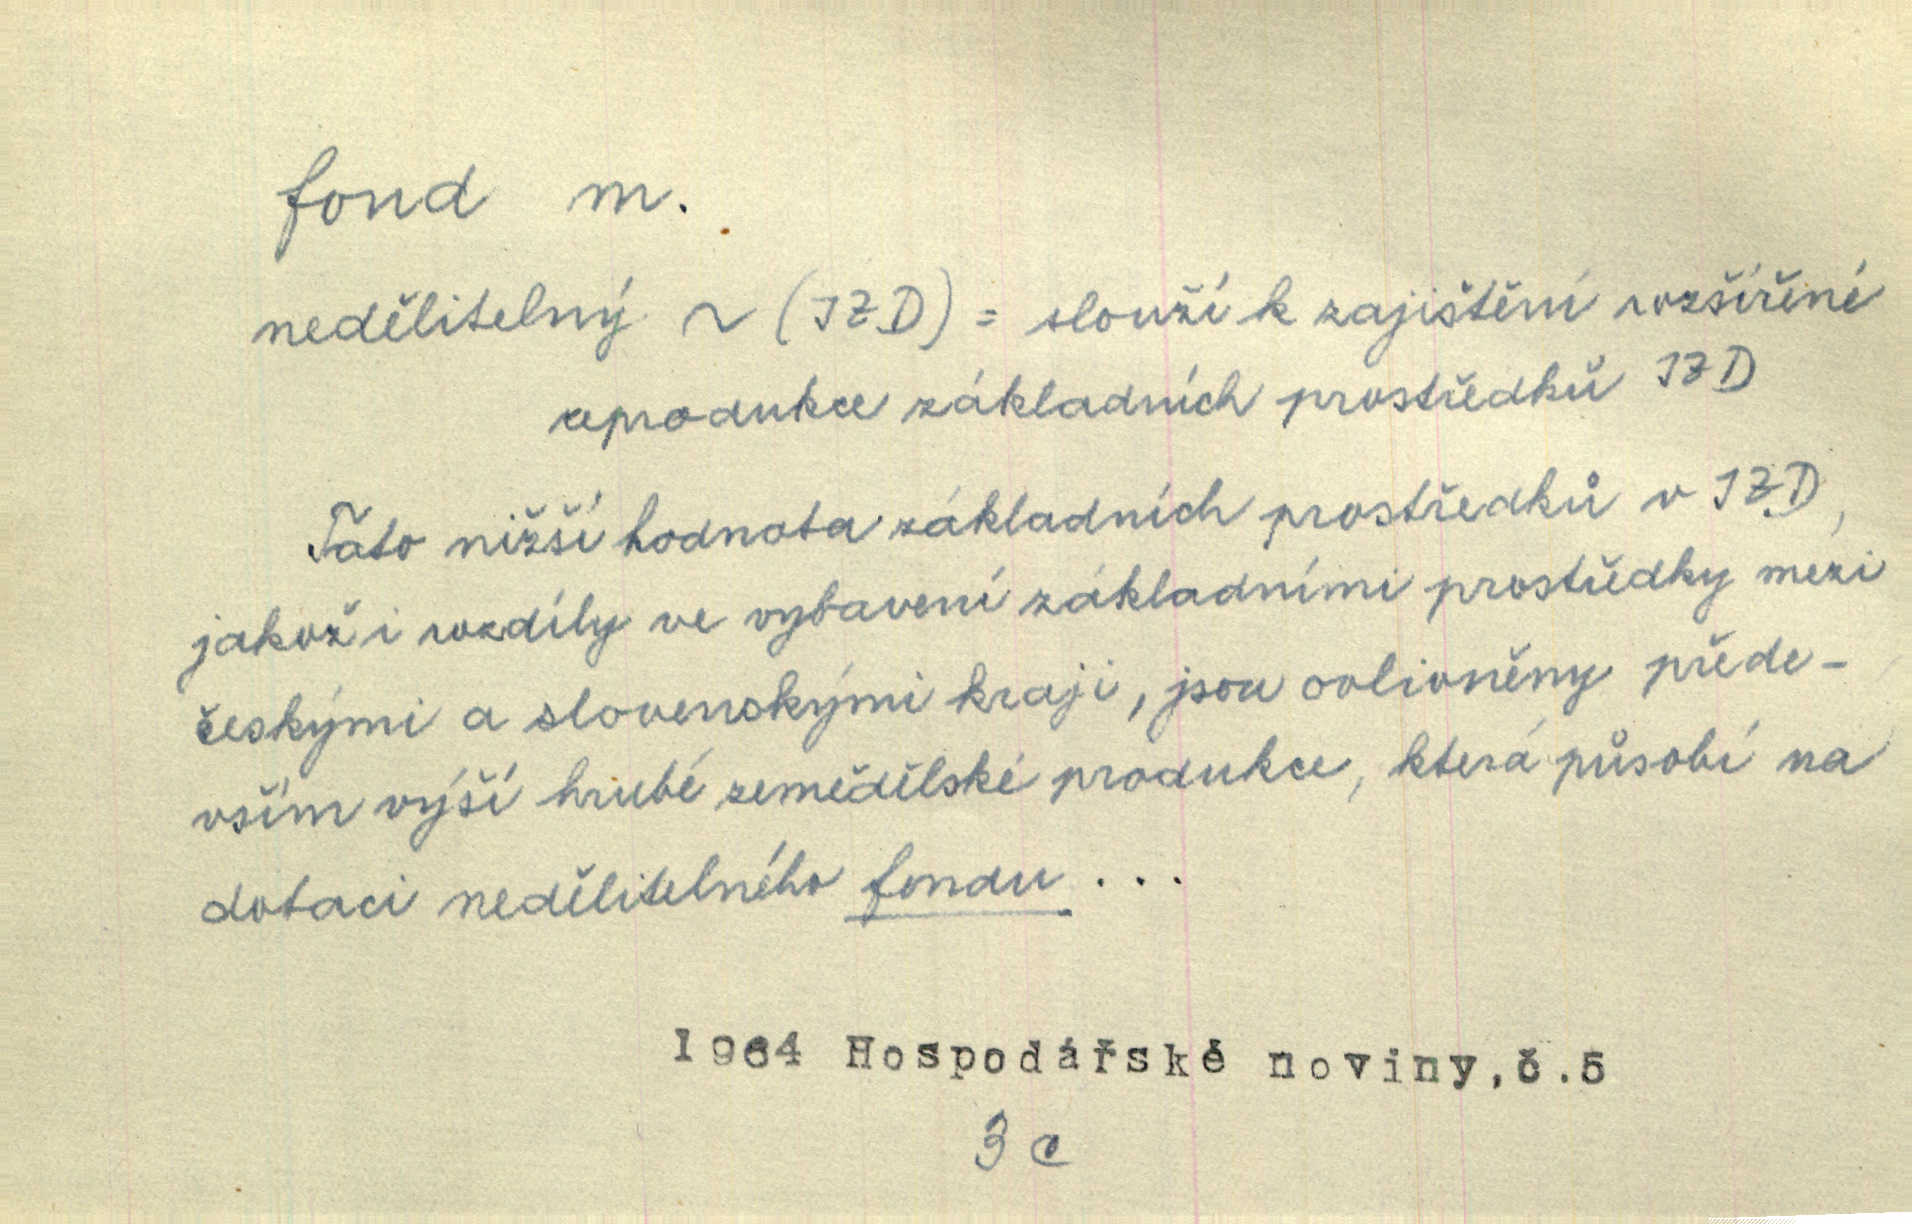 fond m.
nedělitelný ~ (JZD) = slouží k zajištění rozšířené
reprodukce základních prostředků JZD
Tato nižší hodnota základních prostředků v JZD,
jakož i rozdíly ve vybavení základními prostředky mezi
českými a slovenskými kraji, jsou ovlivněny přede-
vším výší hrubé zemědělské produkce, která působí na
dotaci nedělitelného fondu ...
1964 Hospodářské noviny, č.5
3 c